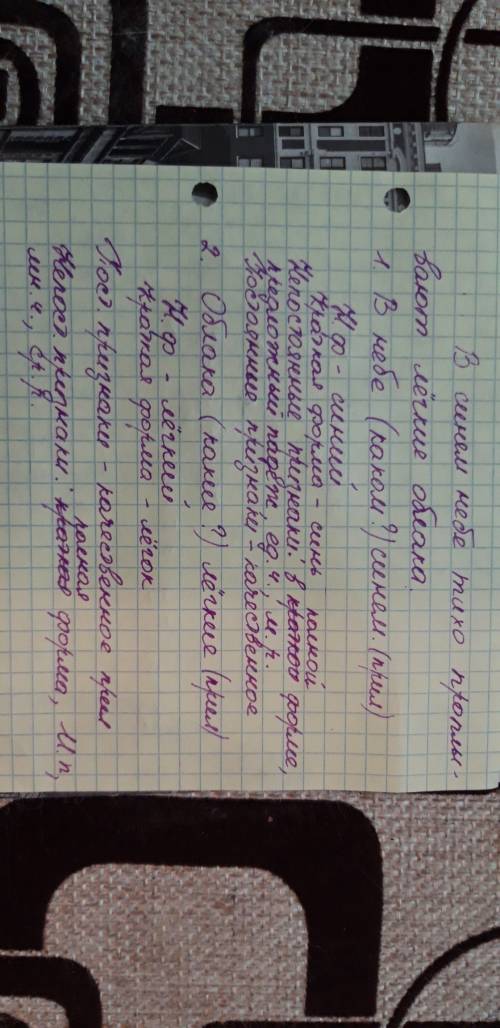 В синем небе тихо проплы-
вают лёгкие облака.
1. В небе (каком?) синем. (прил)
Н.ф - синий
Краткая форма - синь
полной
Непостоянные признаки: в краткой форме,
предложный падеж, ед.ч, м.р.
Постоянные признаки - качественное
2. Облака (какие?) лёгкие (прил)
Н.ф - лёгкий
Краткая форма - лёгок
Пост. признаки - качественное прил
полная
Непост. признаки: краткая форма, И.п,
мн.ч., ср.р.